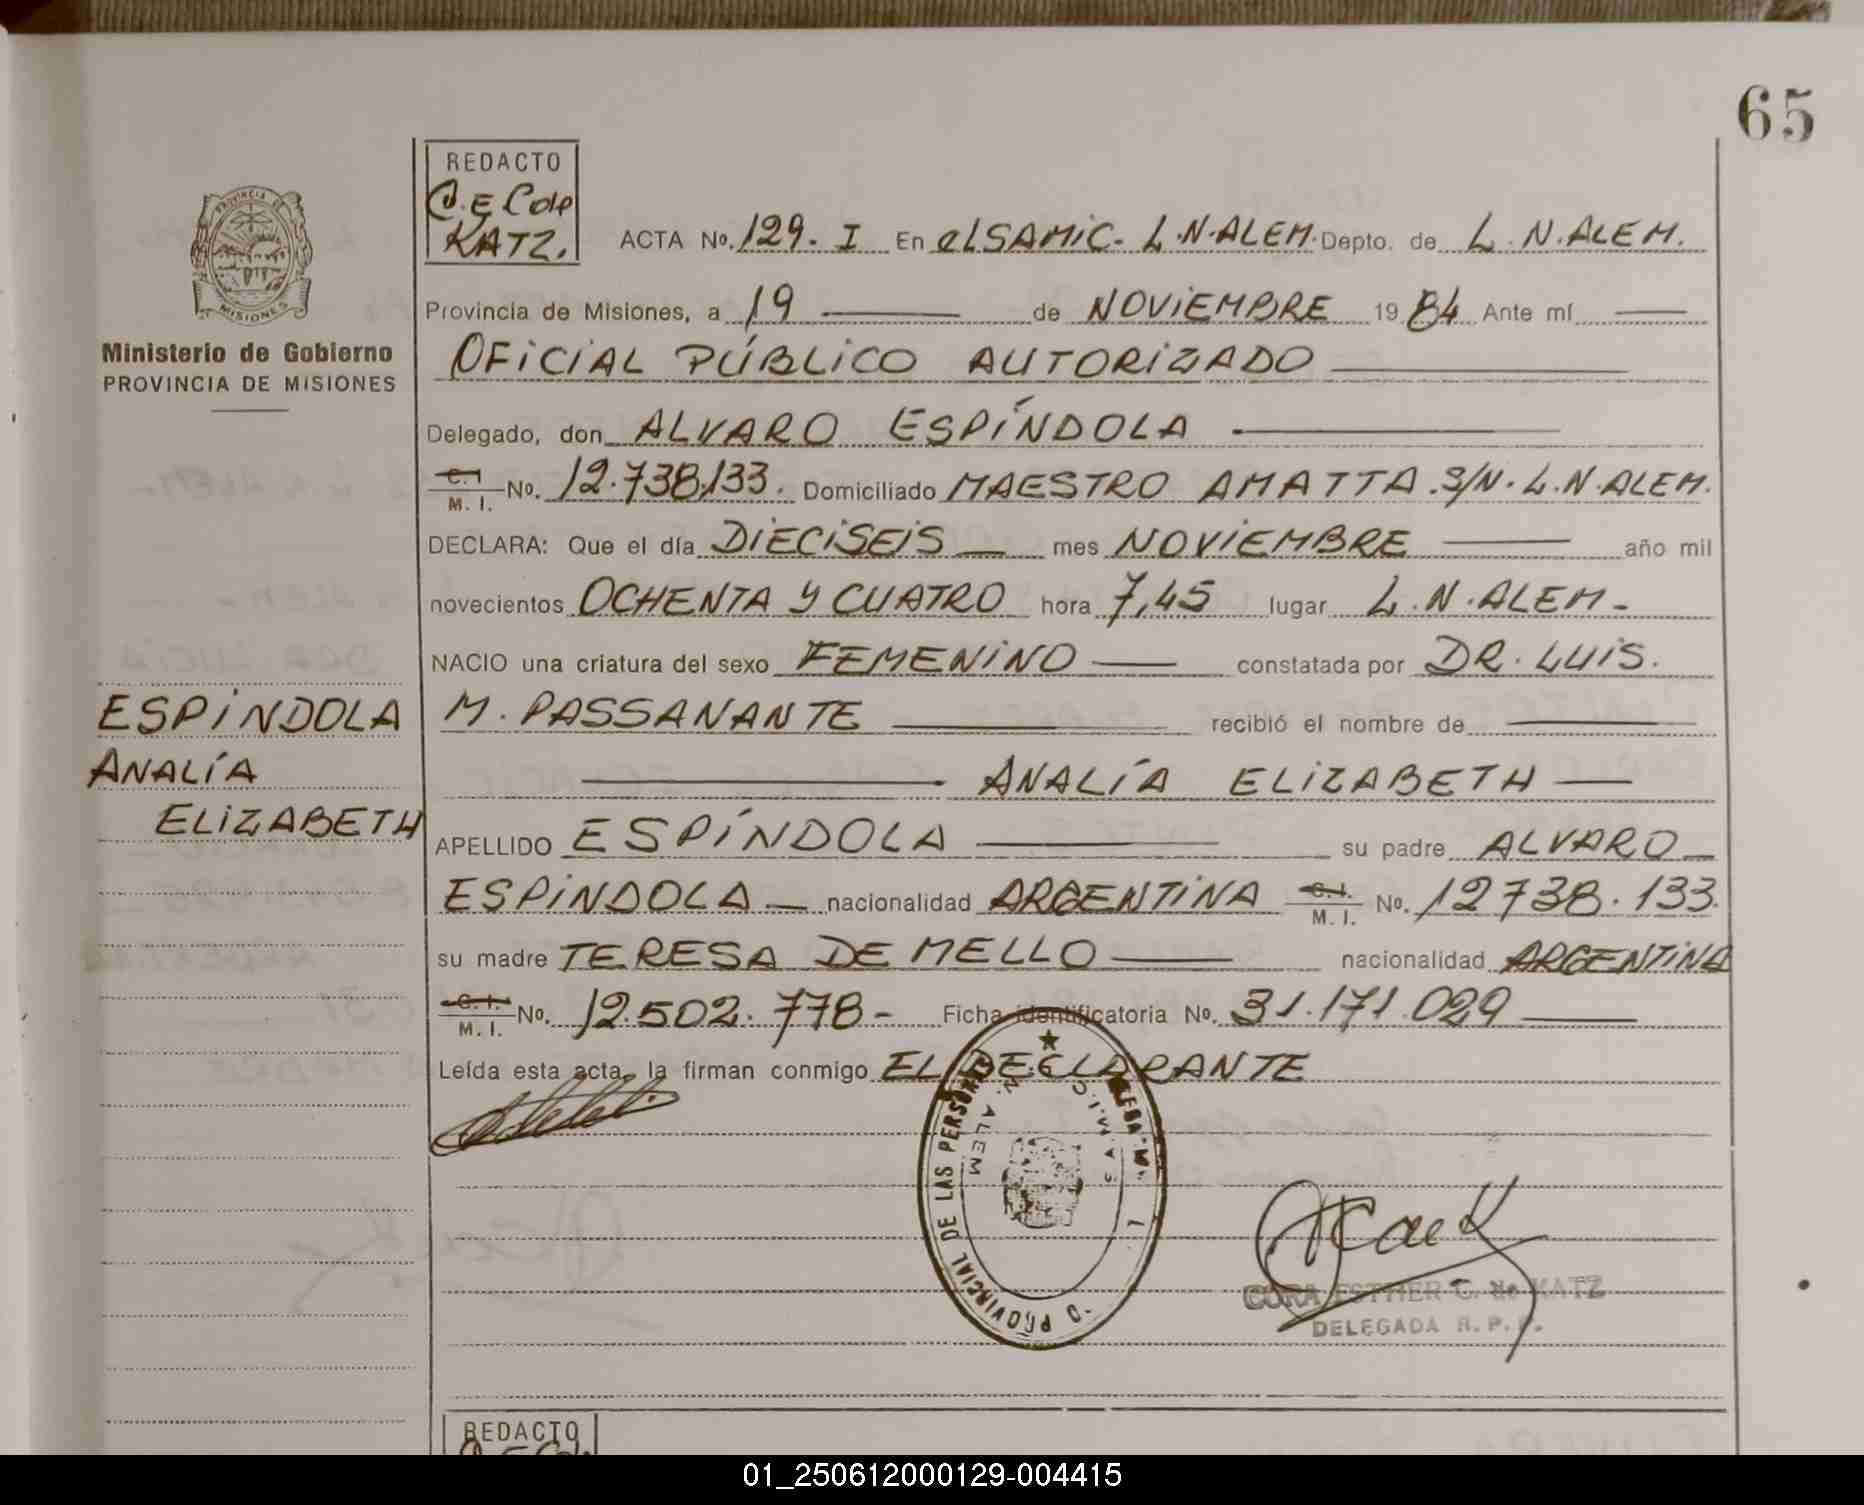 65
PROVINCIA DE
MISIONES
Ministerio de Gobierno
PROVINCIA DE MISIONES
ESPÍNDOLA
ANALÍA
ELIZABETH
REDACTO
C.E. Cde
KATZ.
ACTA No. 129. I En elSAMIC. L.N.ALEM. Depto. de L. N. ALEM.
Provincia de Misiones, a 19 de NOVIEMBRE 1984 Ante mí
OFICIAL PÚBLICO AUTORIZADO
Delegado, don ALVARO ESPÍNDOLA
C.I
M. I. No. 12.738.133. Domiciliado MAESTRO AMATTA. S/N. L.N.ALEM.
DECLARA: Que el día DIECISEIS mes NOVIEMBRE año mil
novecientos OCHENTA Y CUATRO hora 7,45 lugar L.N.ALEM-
NACIO una criatura del sexo FEMENINO constatada por DR. LUIS.
M. PASSANANTE recibió el nombre de
ANALÍA ELIZABETH
APELLIDO ESPÍNDOLA su padre ALVARO
ESPÍNDOLA nacionalidad ARGENTINA C.I. M. I. No. 12738.133.
su madre TERESA DE MELLO nacionalidad ARGENTINA
C.I. M. I. No. 12.502.778- Ficha identificatoria No. 31.171.029
Leída esta acta, la firman conmigo EL DECLARANTE
PROVINCIAL DE LAS PERSONAS
N. ALEM
CORA ESTHER C. de KATZ
DELEGADA R. P. P.
REDACTO
01_250612000129-004415